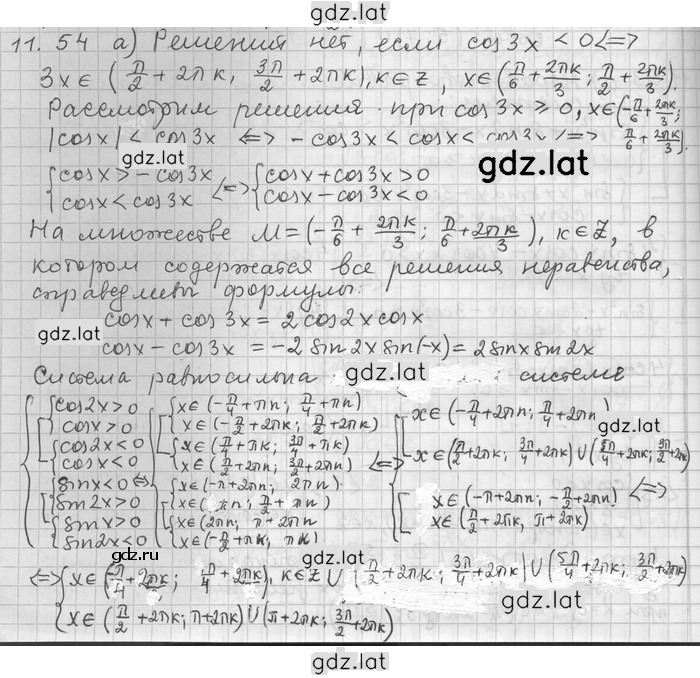 gdz.lat
11.54 а) Решений нет, если cos3x < 0 <=>
3x ∈ (π/2 + 2πk, 3π/2 + 2πk), k∈Z, x∈(π/6 + 2πk/3; π/2 + 2πk/3).
Рассмотрим решения при cos3x ≥ 0, x∈(-π/6 + 2πk/3; π/6 + 2πk/3).
|cosx| < cos3x <=> -cos3x < cosx < cos3x <=>
gdz.lat
gdz.lat
{cosx > -cos3x <=> {cosx + cos3x > 0
{cosx < cos3x {cosx - cos3x < 0
На множестве M = (-π/6 + 2πk/3; π/6 + 2πk/3), k∈Z, в
котором содержатся все решения неравенства,
справедливы формулы:
gdz.lat
gdz.lat
cosx + cos3x = 2cos2xcosx
cosx - cos3x = -2sin2xsin(-x) = 2sinxsin2x
Система равносильна системе
gdz.lat
{cos2x > 0 {x∈(-π/4 + πn; π/4 + πn) x∈(-π/4 + 2πn; π/4 + 2πn)
{cosx > 0 {x∈(-π/2 + 2πk; π/2 + 2πk)
{cos2x < 0 {x∈(π/4 + πk; 3π/4 + πk) x∈(π/2 + 2πk; 3π/4 + 2πk) ∪ (5π/4 + 2πk; 3π/2 + 2πk)
{cosx < 0 {x∈(π/2 + 2πn; 3π/2 + 2πn) <=>
{sinx < 0 <=> {x∈(-π + 2πn; 2πn) x∈(-π + 2πn; -π/2 + 2πn) <=>
{sin2x > 0 {x∈(πn; π/2 + πn) x∈(π/2 + 2πk, π + 2πk)
{sinx > 0 {x∈(2πn; π + 2πn)
{sin2x < 0 {x∈(-π/2 + πk, πk)
gdz.ru
gdz.lat
<=> {x∈(-π/4 + 2πk; π/4 + 2πk), k∈Z ∪ (π/2 + 2πk; 3π/4 + 2πk) ∪ (5π/4 + 2πk; 3π/2 + 2πk)
{x∈(π/2 + 2πk; π + 2πk) ∪ (π + 2πk; 3π/2 + 2πk)
gdz.lat
gdz.lat
gdz.lat